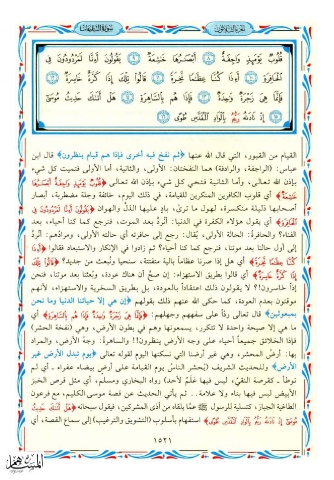 سورة النازعات
قُلُوبٌ يَوْمَئِذٍ وَاجِفَةٌ ٨ أَبْصَارُهَا خَاشِعَةٌ ٩ يَقُولُونَ أَءِنَّا لَمَرْدُودُونَ فِي
الْحَافِرَةِ ١٠ أَءِذَا كُنَّا عِظَامًا نَّخِرَةً ١١ قَالُوا تِلْكَ إِذًا كَرَّةٌ خَاسِرَةٌ ١٢
فَإِنَّمَا هِيَ زَجْرَةٌ وَاحِدَةٌ ١٣ فَإِذَا هُم بِالسَّاهِرَةِ ١٤ هَلْ أَتَاكَ حَدِيثُ مُوسَى
١٥ إِذْ نَادَاهُ رَبُّهُ بِالْوَادِ الْمُقَدَّسِ طُوًى ١٦
القيام من القبور، التي قال الله عنها ﴿ثم نفخ فيه أخرى فإذا هم قيام ينظرون﴾ قال ابن
عباس: (الراجفة، والرادفة) هما النفختان: الأولى، والثانية، أما الأولى فتميت كل شيء
بإذن الله تعالى، وأما الثانية فتحيي كل شيء بإذن الله تعالى ﴿قُلُوبٌ يَوْمَئِذٍ وَاجِفَةٌ أَبْصَارُهَا
خَاشِعَةٌ﴾ أي قلوب الكافرين المنكرين للقيامة، في ذلك اليوم، خائفة وجلة مضطربة، أبصار
أصحابها ذليلة منكسرة، لهول ما ترى، بادٍ عليها الذلُّ والهوان ﴿يَقُولُونَ أَءِنَّا لَمَرْدُودُونَ فِي
الْحَافِرَةِ﴾ أي يقول هؤلاء الكفرة في الدنيا: أنُردُّ بعد الموت، فنرجع كما كنا أحياء، بعد
الفناء؟ والحافرة: الحالة الأولى، يُقال: رجع إلى حافرته أي حالته الأولى، ومرادُهم: أنُردُّ
إلى أول حالنا بعد موتنا، فنرجع كما كنا أحياء؟ ثم زادوا في الإنكار والاستبعاد فقالوا ﴿أَءِذَا
كُنَّا عِظَامًا نَّخِرَةً﴾ أي هل إذا صرنا عظاماً بالية مفتتة، سنحيا ونُبعث من جديد؟ ﴿قَالُوا تِلْكَ
إِذًا كَرَّةٌ خَاسِرَةٌ﴾ أي قالوا بطريق الاستهزاء: إن صحَّ أن هناك عودة، وبَعثنا بعد موتنا، فنحن
إذاً خاسرون!! لا يقولون ذلك اعتقاداً بالعودة، بل بطريق السخرية والاستهزاء، لأنهم
موقنون بعدم العودة، كما حكى الله عنهم ذلك بقولهم ﴿إن هي إلا حياتنا الدنيا وما نحن
بمبعوثين﴾ قال تعالى ردًّا على سفههم وجهلهم: ﴿فَإِنَّمَا هِيَ زَجْرَةٌ وَاحِدَةٌ فَإِذَا هُم بِالسَّاهِرَةِ﴾ أي
ما هي إلا صيحة واحدة لا تتكرر، يسمعونها وهم في بطون الأرض، وهي (نفخة الحشر)
فإذا الخلائق جميعاً أحياء على وجه الأرض ينظرون!! والساهرةُ: وجهُ الأرض، والمراد
بها: أرضُ المحشر، وهي غير أرضنا التي نسكنها اليوم لقوله تعالى ﴿يوم تبدل الأرض غير
الأرض﴾ وللحديث الشريف (يُحشر الناسُ يوم القيامة على أرضٍ بيضاء عفراء ـ أي لم
توطأ ـ كقرصة النقيِّ، ليس فيها عَلَمٌ لأحد) رواه البخاري ومسلم، أي مثل قرص الخبز
الأبيض ليس فيها بناء ولا علامة.. ثم يأتي الحديث عن قصة موسى الكليم، مع فرعون
الطاغية الجبار، كتسلية للرسول ﷺ عمَّا يلقاه من أذى المشركين، فيقول سبحانه ﴿هَلْ أَتَاكَ حَدِيثُ
مُوسَى إِذْ نَادَاهُ رَبُّهُ بِالْوَادِ الْمُقَدَّسِ طُوًى﴾ استفهام بأسلوب (التشويق والترغيب) إلى سماع القصة، أي
١٥٢١